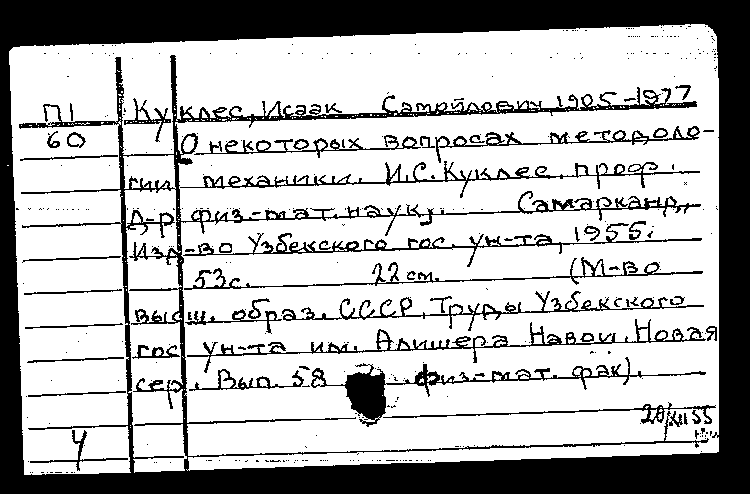 П1 Куклес, Исаак Самойлович, 1905-1977
60 О некоторых вопросах методоло-
гии механики. И.С. Куклес. проф.
д-р физ-мат. наук,. Самарканд,
Изд-во Узбекского гос. ун-та, 1955.
53с. 22 см. (М-во
высш. образ. СССР, Труды Узбекского
гос ун-та им. Алишера Навои. Новая
сер. Вып. 58 физ-мат. фак).
20/XII 55
Ч